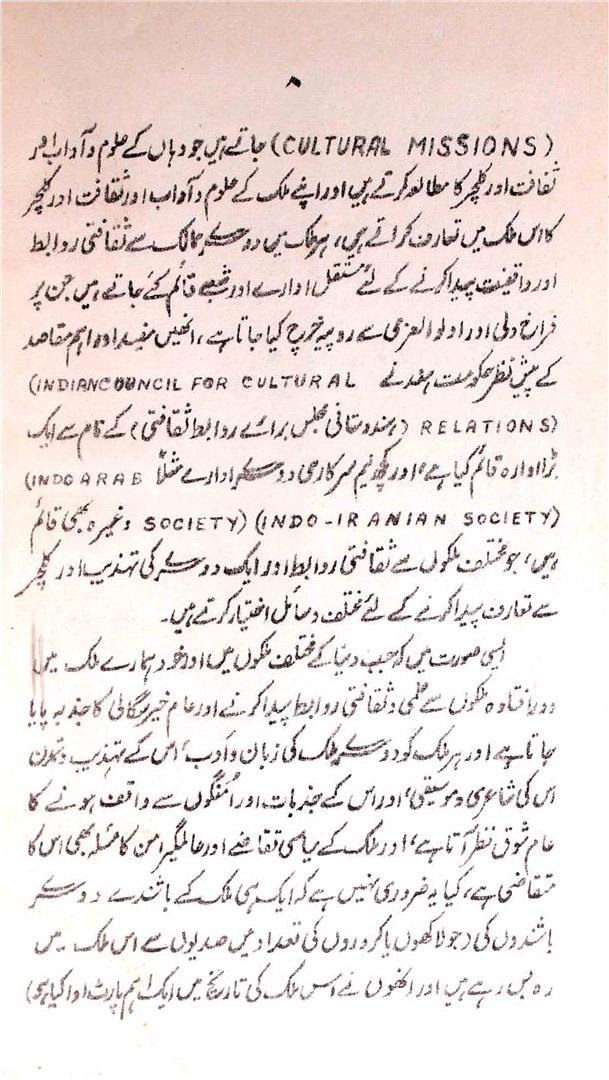 ۸
(CULTURAL MISSIONS) جاتے ہیں جو وہاں کے علوم و آداب اور
ثقافت اور کلچر کا مطالعہ کرتے ہیں اور اپنے ملک کے علوم و آداب اور ثقافت اور کلچر
کا اس ملک میں تعارف کراتے ہیں، ہر ملک میں دوسرے ممالک سے ثقافتی روابط
اور واقفیت پیدا کرنے کے لئے مستقل ادارے اور شعبے قائم کئے جاتے ہیں جن پر
فراخ دلی اور اولوالعزمی سے روپیہ خرچ کیا جاتا ہے، انھیں مفید اور اہم مقاصد
کے پیش نظر حکومت ہند نے (INDIAN COUNCIL FOR CULTURAL
RELATIONS) (ہندوستانی مجلس برائے روابط ثقافتی) کے نام سے ایک
بڑا ادارہ قائم کیا ہے، اور کچھ نیم سرکاری دوسرے ادارے مثلاً (INDO ARAB
SOCIETY) (INDO-IRANIAN SOCIETY) وغیرہ بھی قائم
ہیں، جو مختلف ملکوں سے ثقافتی روابط اور ایک دوسرے کی تہذیب اور کلچر
سے تعارف پیدا کرنے کے لئے مختلف وسائل اختیار کرتے ہیں۔
ایسی صورت میں کہ جب دنیا کے مختلف ملکوں میں اور خود ہمارے ملک میں
دور افتادہ ملکوں سے علمی و ثقافتی روابط پیدا کرنے اور عام خیر سگالی کا جذبہ پایا
جاتا ہے اور ہر ملک کو دوسرے ملک کی زبان و ادب، اس کے تہذیب و تمدن
اس کی شاعری و موسیقی، اور اس کے جذبات اور امنگوں سے واقف ہونے کا
عام شوق نظر آتا ہے، اور ملک کے سیاسی تقاضے اور عالمگیر امن کا مسئلہ بھی اس کا
متقاضی ہے، کیا یہ ضروری نہیں ہے کہ ایک ہی ملک کے باشندے دوسرے
باشندوں کی (جو لاکھوں یا کروروں کی تعداد میں صدیوں سے اس ملک میں
رہ بس رہے ہیں اور انھوں نے اس ملک کی تاریخ میں ایک اہم پارٹ ادا کیا ہی)